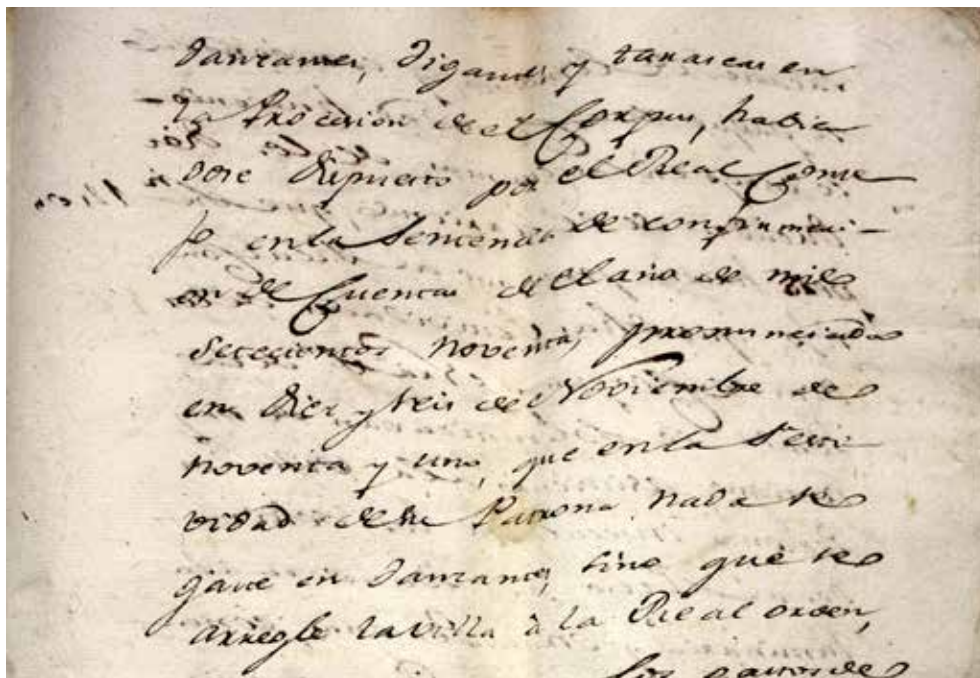 Danzantes, Gigantes y tarascas en
la Procesion de el Corpus, habien
dose dispuesto por el Real Conse
jo en la Sentencia de confirmaci-
on de Cuentas de el año de mil
setecientos noventa, pronunciada
en diez y seis de Noviembre de
noventa y uno, que en la Festi
vidad de su Patrona nada se
gaste en Danzantes, sino que se
arregle la villa à la Real orden,
los gastos de